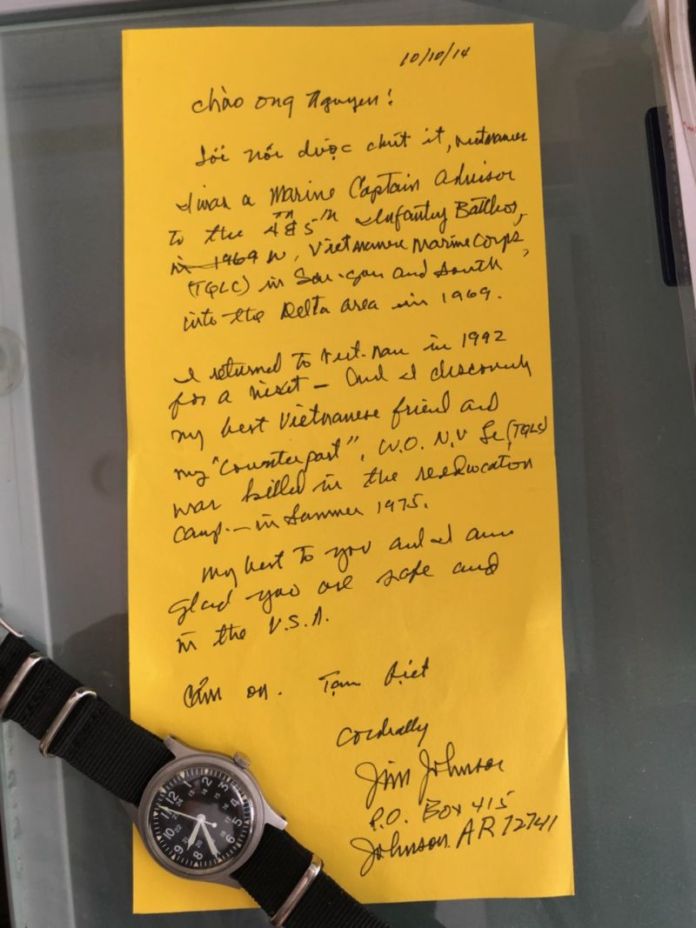 10/10/14
Chào ong Nguyen!
Tôi nói được chút ít, vietnamese
I was a Marine Captain Advisor
to the 4th & 5th Infantry Battlion,
in 1969 in, Vietnamese Marine Corps,
(TQLC) in Sai-gon and South
into the Delta area in 1969.
I returned to Viet-Nam in 1992
for a visit – And I discovered
my best Vietnamese friend and
my "Counterpart", W.O. N.V Le (TQLC)
was killed in the reeducation
camp – in Summer 1975.
My best to you and I am
glad you are safe and
in the U.S.A.
Cám on. Tạm Biet
Cordially
Jim Johnson
P.O. Box 415
Johnson AR 72741
12
1
2
3
4
8
9
10
11